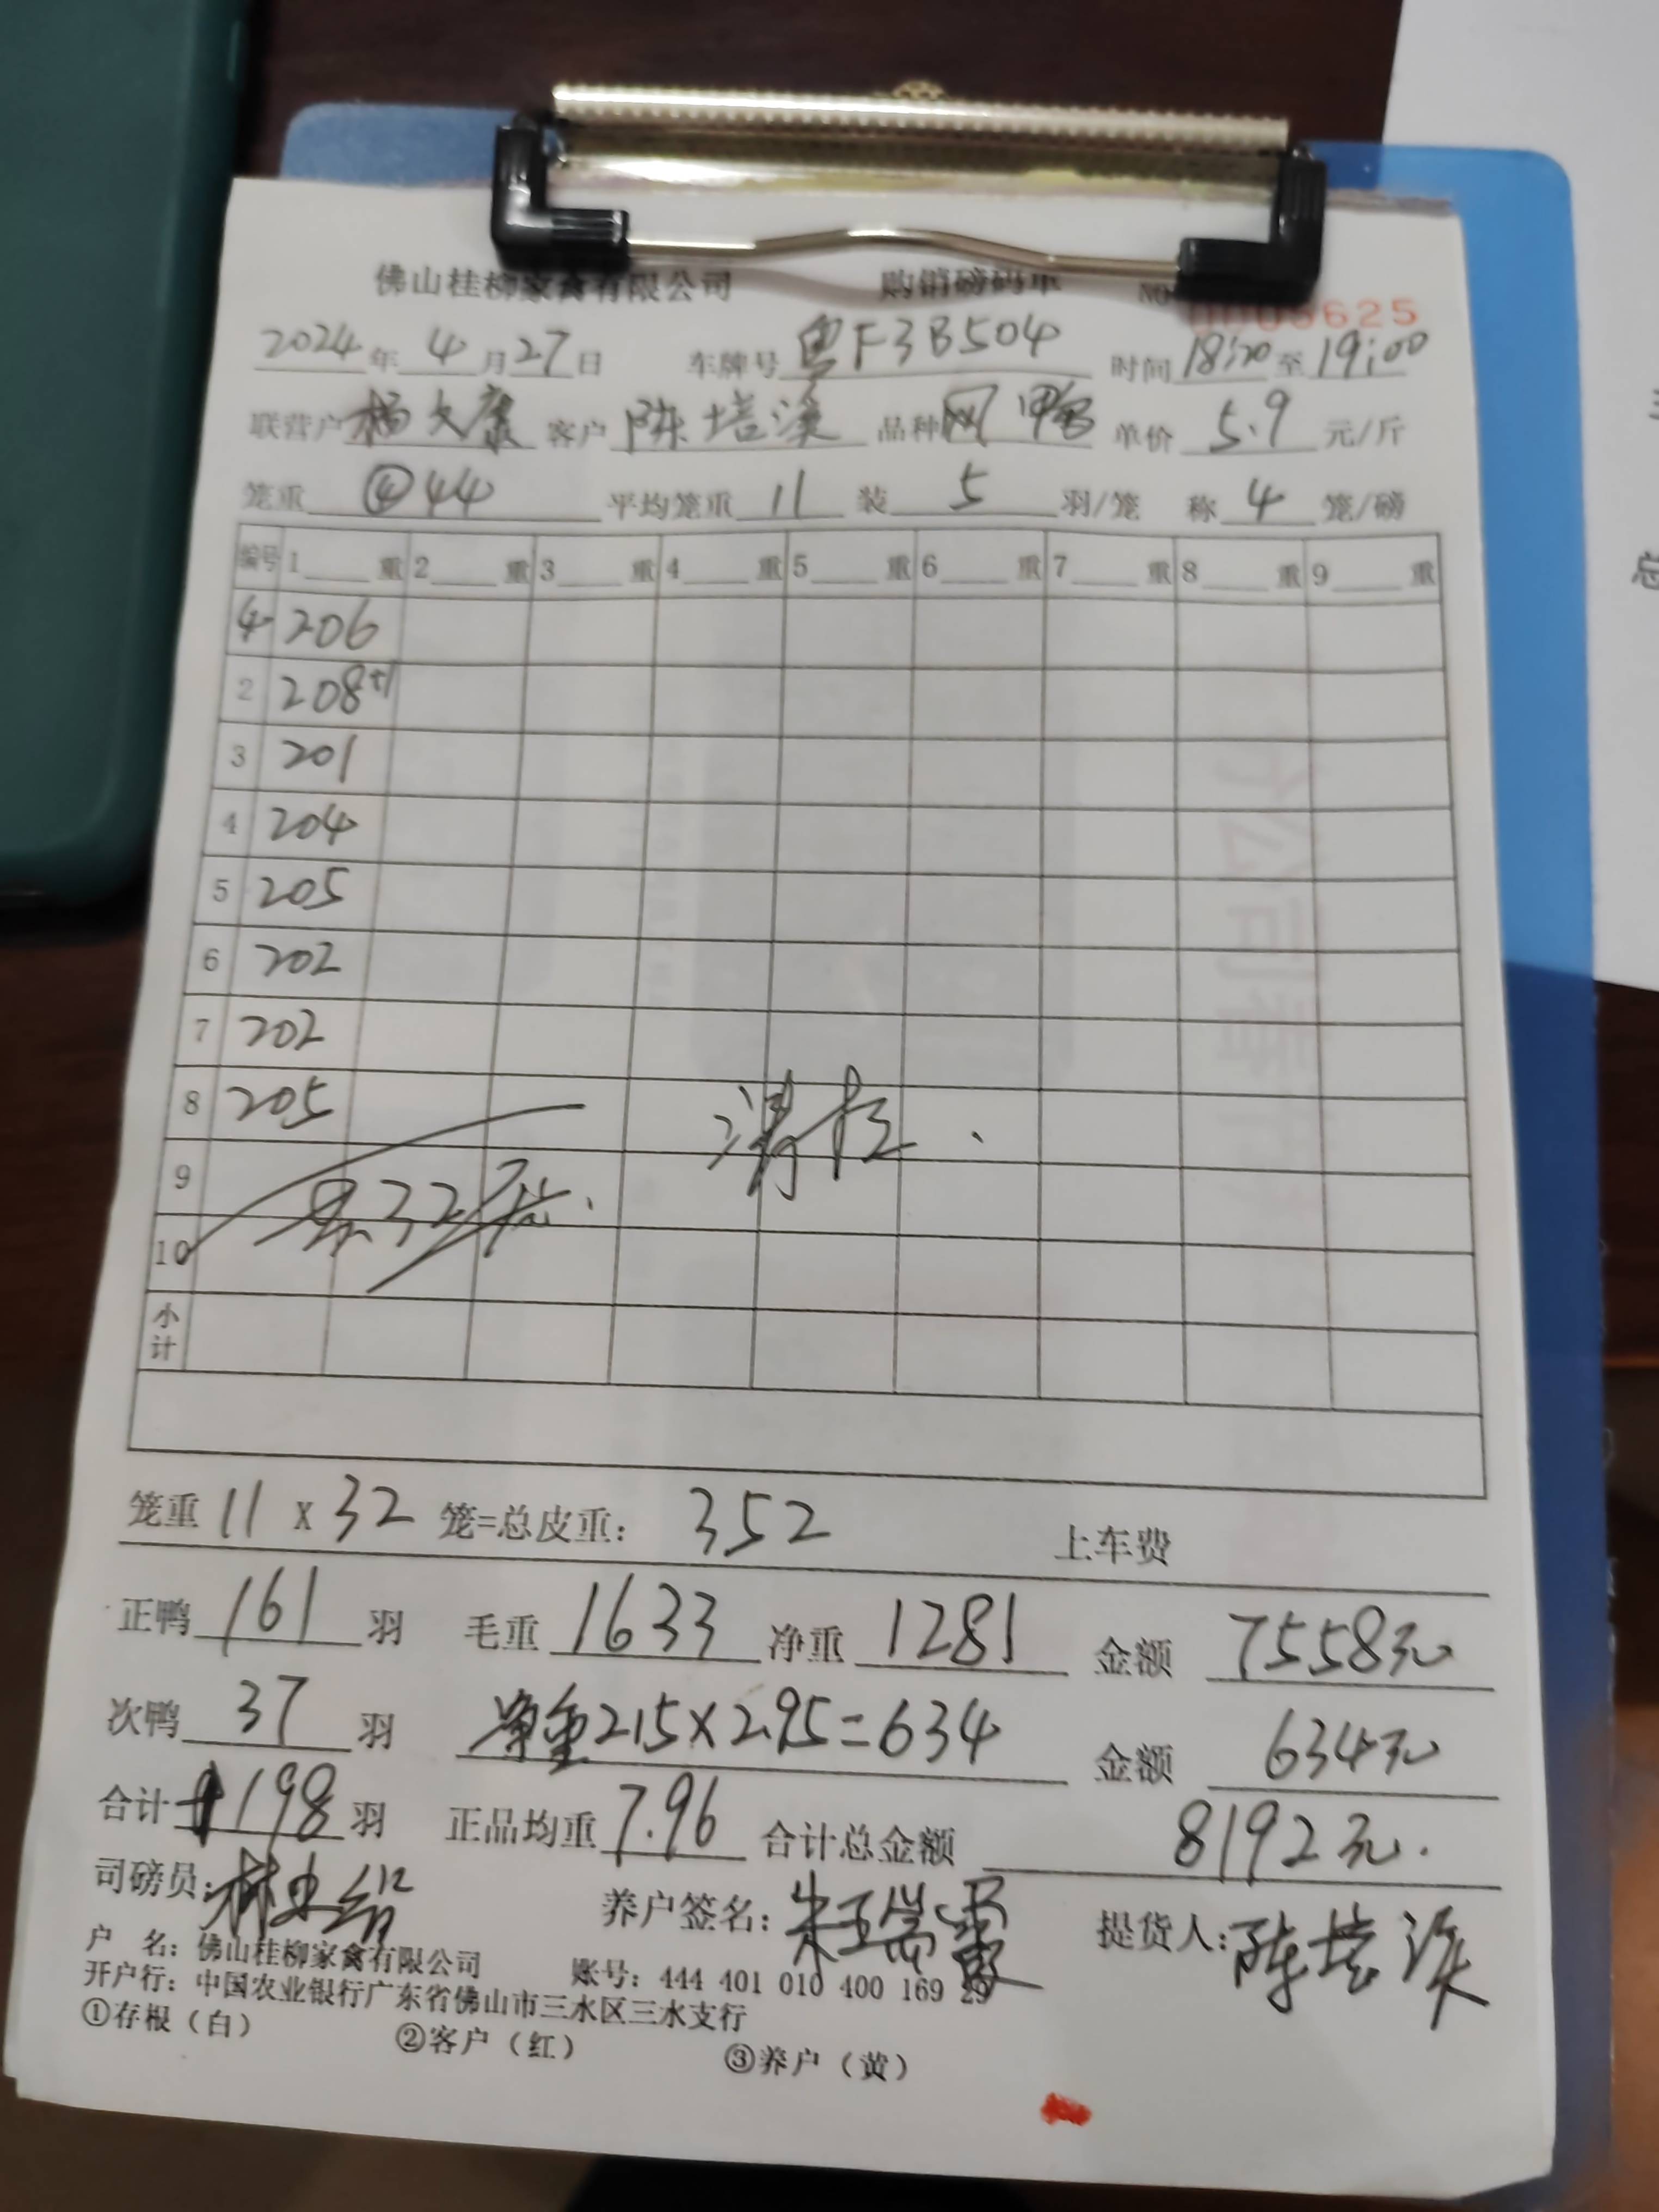 佛山桂柳家禽有限公司 购销磅码单 NO 0005625
2024年4月27日 车牌号 粤F3B504 时间 18:20 至 19:00
联营户 杨大康 客户 陈培溪 品种 网鸭 单价 5.9 元/斤
笼重 ④44 平均笼重 11 装 5 羽/笼 称 4 笼/磅
编号 1 重 2 重 3 重 4 重 5 重 6 重 7 重 8 重 9 重
4 206
2 208+1
3 201
4 204
5 205
6 202
7 202
8 205
清栏.
9
共32笼.
10
小计
笼重 11 x 32 笼=总皮重: 352 上车费
正鸭 161 羽 毛重 1633 净重 1281 金额 7558元
次鸭 37 羽 净重215×2.95=634 金额 634元
合计 198 羽 正品均重 7.96 合计总金额 8192元.
司磅员: 养户签名: 提货人:
户 名: 佛山桂柳家禽有限公司 账号: 444 401 010 400 169 29
开户行: 中国农业银行广东省佛山市三水区三水支行
①存根（白） ②客户（红） ③养户（黄）